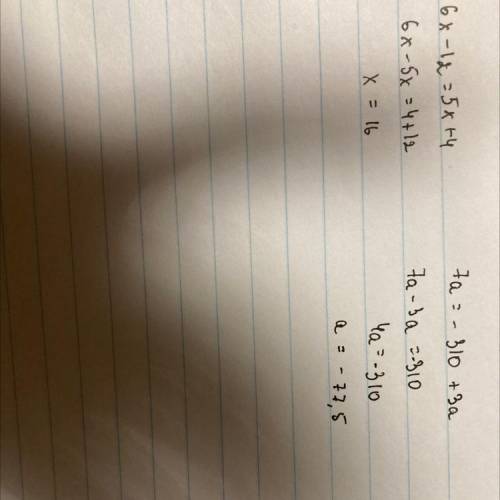 6x - 12 = 5x + 4
6x - 5x = 4 + 12
x = 16
7a = - 310 + 3a
7a - 3a = -310
4a = -310
a = - 77,5